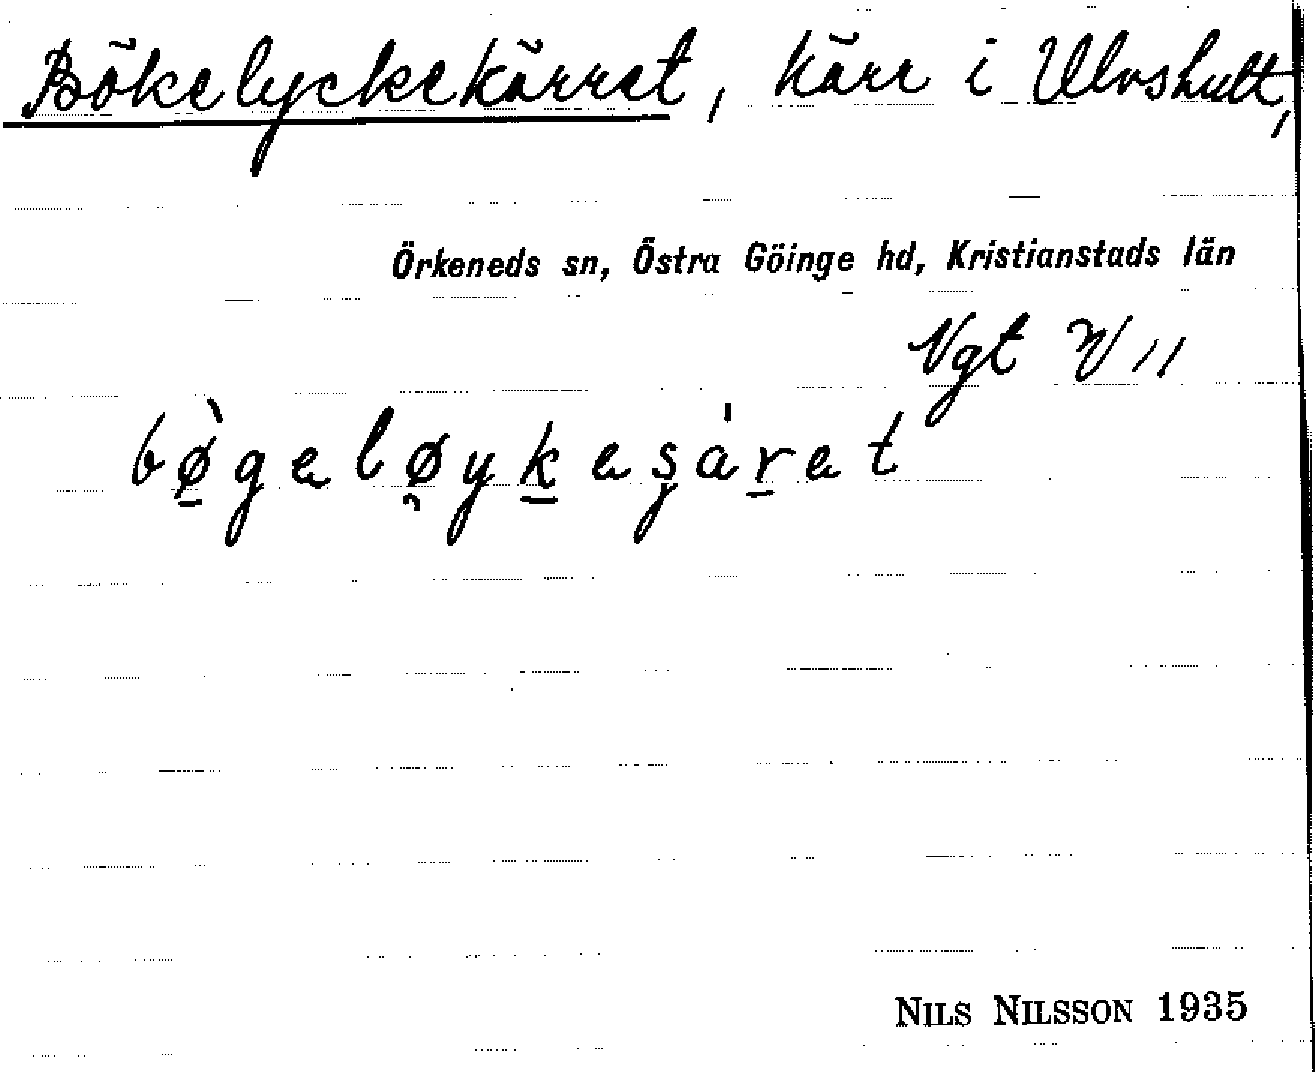 Bökelyckekärret, kärr i Ulvshult,
Örkeneds sn, Östra Göinge hd, Kristianstads län
Vgt
bø̠̀geløyk̠esár̠et
NILS NILSSON 1935